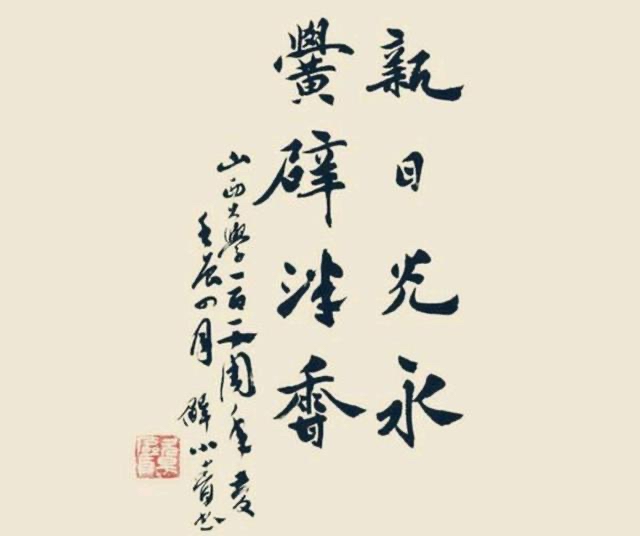 親日光永
黌辟泮香
山西大學一百一十周年慶
壬辰四月 解小青书